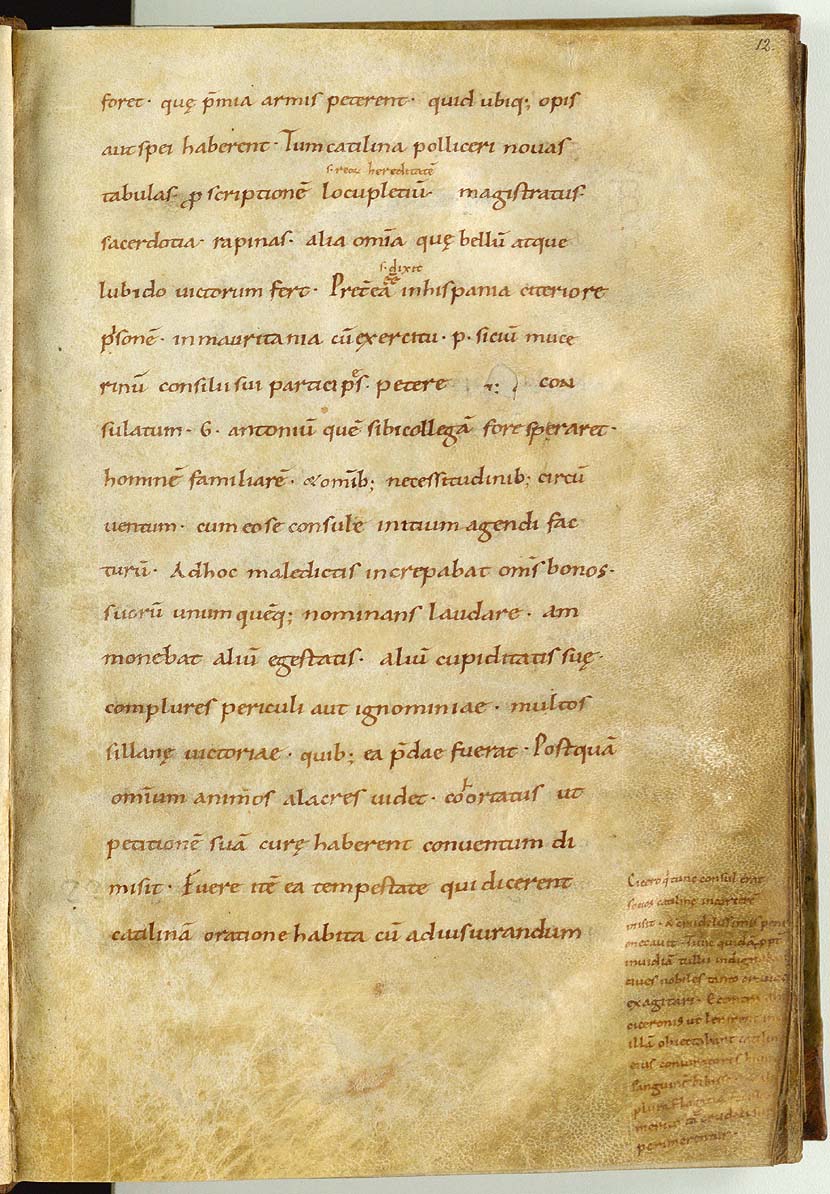 12.
foret· quę p̄mia armis peterent· quid ubiq; opis
aut spei haberent· Tum catilina polliceri nouas
s. reoꝝ hereditatē
tabulas· ꝓscriptionē locupletiū· magistratus·
sacerdotia· rapinas· alia om̄ia quę bellū atque
s. dixit
ēē
lubido uictorum fert· Pret̄eā inhispania citeriore
p̓sonē· inmauritania cū exercitu· p· siciū nuce
rinū consilii sui participes· petere con
sulatum· G· antoniū quē sibi collegā fore speraret·
hominē familiarē· & om̄ib; necessitudinib; circū
uentum· cum eo se consule initium agendi fac
turū· Adhoc maledictis increpabat om̄s bonos·
suorū unum quēq; nominans laudare· am
monebat aliū egestatis· aliū cupiditatis suę·
complures periculi aut ignominiae· multos
sillanę uictoriae· quib; ea p̄dae fuerat· Postquā
omīum animos alacres uidet· cohortatus ut
petitionē suā curę haberent conuentum di
misit· Fuere itē ea tempestate qui dicerent
catilinā oratione habita cū ad iusiurandum
Cicero q̓ tunc consul erat
socios catilinę incarcerē
misit· & crudelissimis
necauit· Tunc quidā ꝓpt
inuidiā tullii
ciues nobiles tanto
exagitari· Econtra
ciceronis ut
illā obiectabant
eius coniuratores
sanguinē bibisse
plura flagitia
perimerentur·